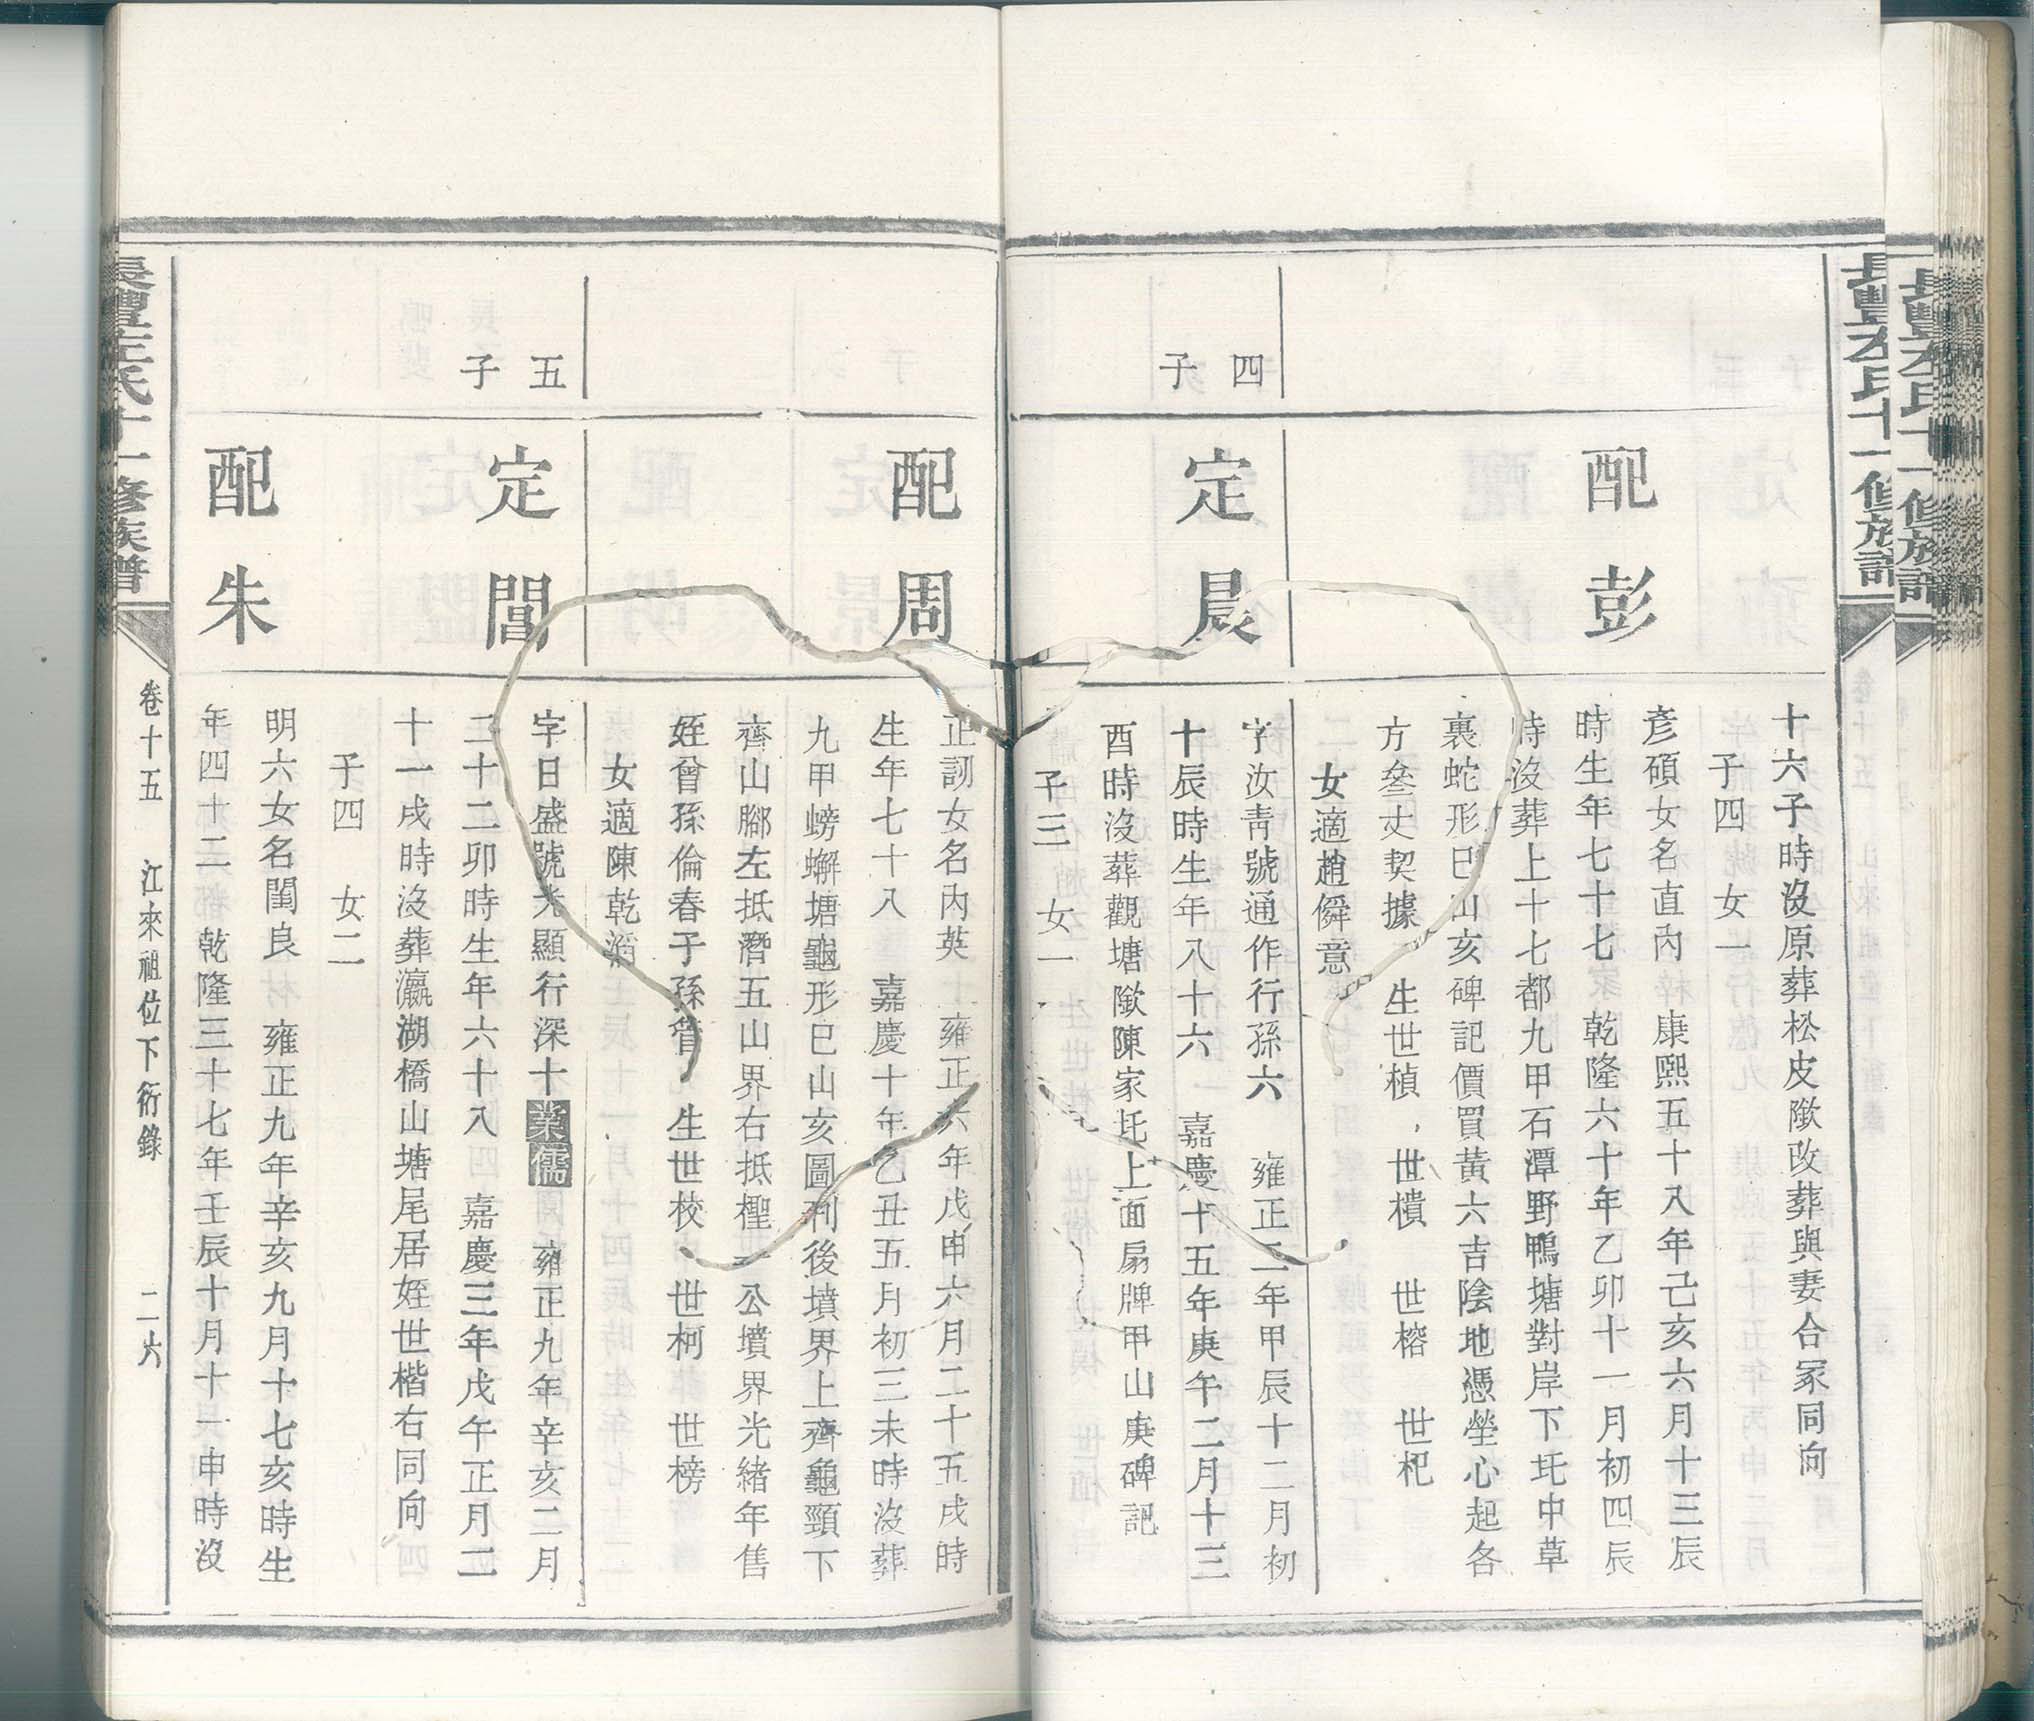 十六子時沒原葬松皮歘改葬與妻合冢同向
子四　女一
配彭
彥碩女名直內　康熙五十八年己亥六月十三辰
時生年七十七　乾隆六十年乙卯十一月初四辰
時沒葬上十七都九甲石潭野鴨塘對岸下坃中草
裏蛇形巳山亥碑記價買黃六吉陰地憑塋心起各
方叄丈契據　生世楨　世樻　世榕　世杞
女適趙僯意
四子
定晨
字汝靑號通作行孫六　雍正二年甲辰十二月初
十辰時生年八十六　嘉慶十五年庚午二月十三
酉時沒葬觀塘歘陳家坃上面扇牌甲山庚碑記
子三　女一
配周
正訒女名內英　雍正六年戊申六月二十五戌時
生年七十八　嘉慶十年乙丑五月初三未時沒葬
九甲螃蠏塘龜形巳山亥圖列後墳界上齊龜頸下
齊山腳左抵潛五山界右抵檉　公墳界光緒年售
姪曾孫倫春子孫管　生世校　世柯　世榜
女適陳乾滔
五子
定閶
字日盛號光顯行深十業儒　雍正九年辛亥二月
二十二卯時生年六十八　嘉慶三年戊午正月二
十一戌時沒葬瀛湖橋山塘尾居姪世楷右同向
子四　女二
配朱
明六女名閨良　雍正九年辛亥九月十七亥時生
年四十二　乾隆三十七年壬辰十月十一申時沒
長豐左氏十一修族譜　卷十五　江來祖位下衍錄　二六